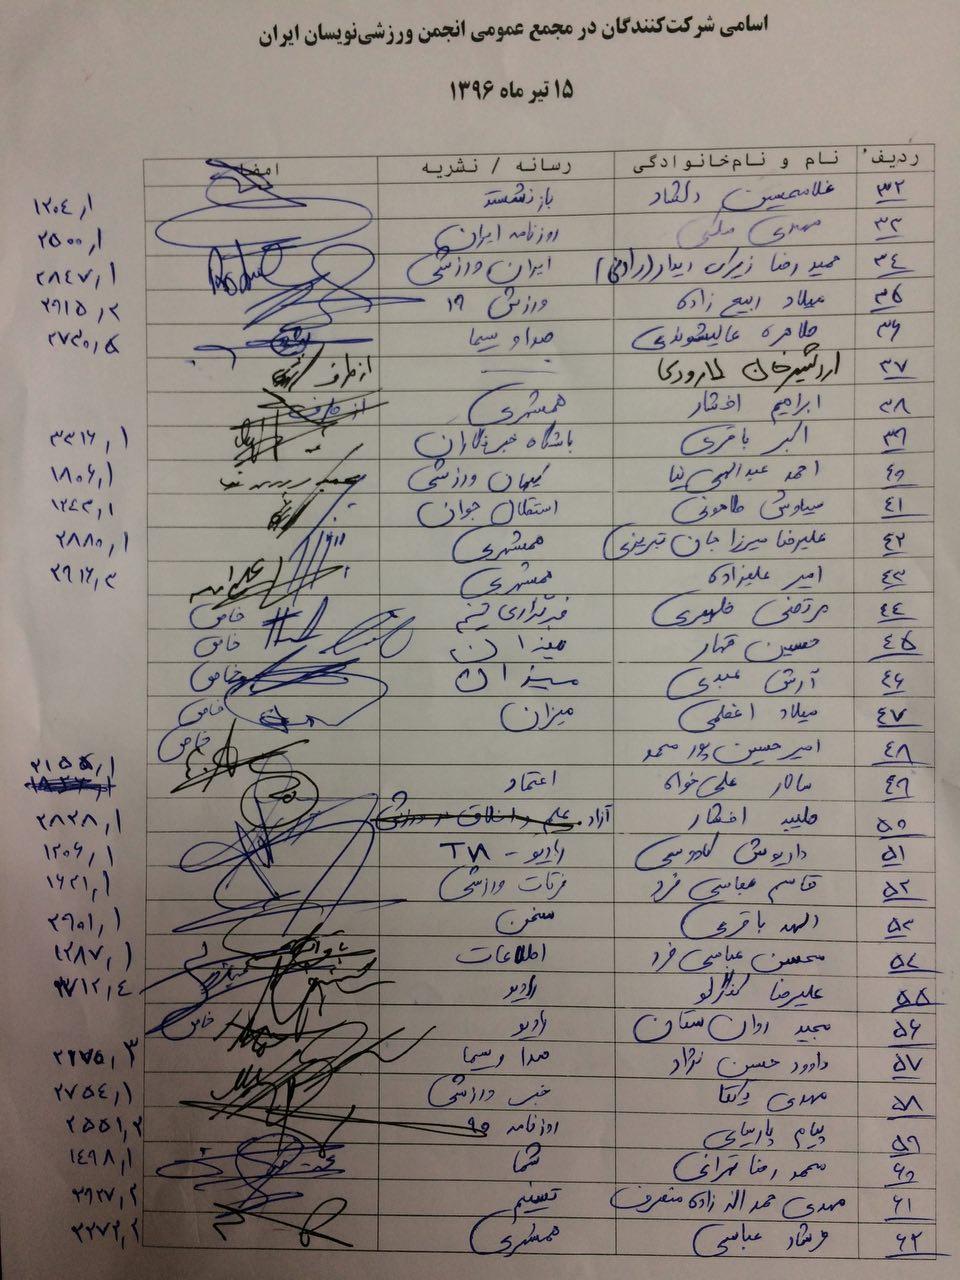 اسامی شرکت‌کنندگان در مجمع عمومی انجمن ورزشی‌نویسان ایران
۱۵ تیر ماه ۱۳۹۶
ردیف نام و نام‌خانوادگی رسانه / نشریه امضاء
۳۲ غلامحسین دلشاد بازنشسته ۱۲۰۴٫۱
۳۳ مهدی ملکی روزنامه ایران ۲۵۰۰٫۱
۳۴ حمید رضا زیرک دیدار (رادفر) ایران ورزشی ۲۸۴۷٫۱
۳۵ میلاد ربیع زاده ورزش ۱۹ ۲۹۱۵٫۲
۳۶ طاهره عالیشوندی صدا و سیما ۲۷۳۰٫۵
۳۷ اردشیرخان لارودی از طرف
۳۸ ابراهیم افشار همشهری از طرف
۳۹ اکبر باقری باشگاه خبرنگاران ۳۳۱۶٫۱
۴۰ احمد عبدالهی نیا کیهان ورزشی ۱۸۰۶٫۱
۴۱ سیاوش طاهونی استقلال جوان ۱۲۴۳٫۱
۴۲ علیرضا میرزا جان تبریزی همشهری ۲۸۸۰٫۱
۴۳ امیر علیزاده همشهری ۲۹۱۶٫۳
۴۴ مرتضی خبرگزاری خاص
۴۵ حسین قهار میزان خاص
۴۶ آرش عبدی میزان خاص
۴۷ میلاد اعظمی میزان خاص
۴۸ امیرحسین پورمحمد خاص
۴۹ سالار علی خواه اعتماد ۲۱۵۵٫۱
۵۰ افشار آزاد علم و اخلاق در ورزش ۲۸۲۸٫۱
۵۱ داریوش کاردوسی رادیو - TV ۱۲۰۶٫۱
۵۲ قاسم عباسی فرد ورزشی ۱۶۲۱٫۱
۵۳ الهه باقری سخن ۲۹۰۱٫۱
۵۴ محسن عباسی فرد اطلاعات ۱۲۸۷٫۱
۵۵ علیرضا گنزلو رادیو ۳۷۱۲٫۴
۵۶ مجید روان ستان رادیو خاص
۵۷ داوود حسن نژاد صدا و سیما ۲۶۷۵٫۳
۵۸ مهدی یکتا خبر ورزشی ۲۷۵۴٫۱
۵۹ پیام پارسایی روزنامه ۹۰ ۲۵۵۱٫۲
۶۰ محمد رضا تهرانی شما ۱۴۹۸٫۱
۶۱ مهدی حمداله زاده منفرد تسنیم ۲۹۲۷٫۲
۶۲ فرشاد عباسی همشهری ۳۲۷۲٫۲